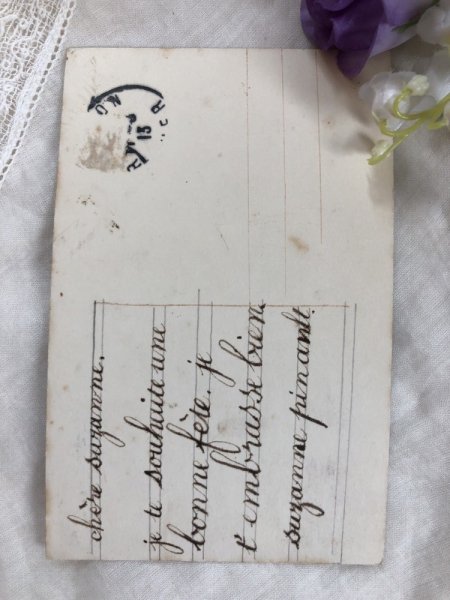 chère suzanne.
je te souhaite une
bonne fête. je
t'embrasse bien
suzanne pinant.
15